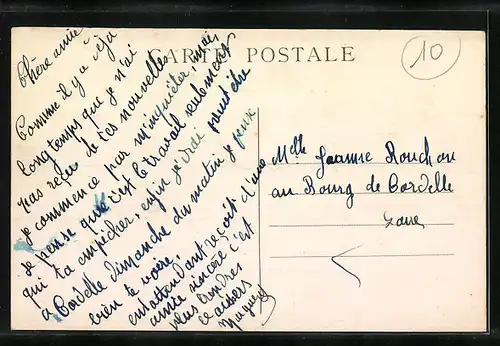 CARTE POSTALE
10
Chère amie
Comme il y a déjà
longtemps que je n'ai
pas reçu de tes nouvelles
je commence pas m'inquiéter, mais
je pense que c'est le travail seulement
qui t'a empicher, enfin j'irai peut être
à Cordelle dimanche du matin je peux
bien te voire,
en attendant reçoit d'une
amie sincère c'est
plus tendres
baisers
Melle Jeanne Rouchon
au Bourg de Cordelle
Loire